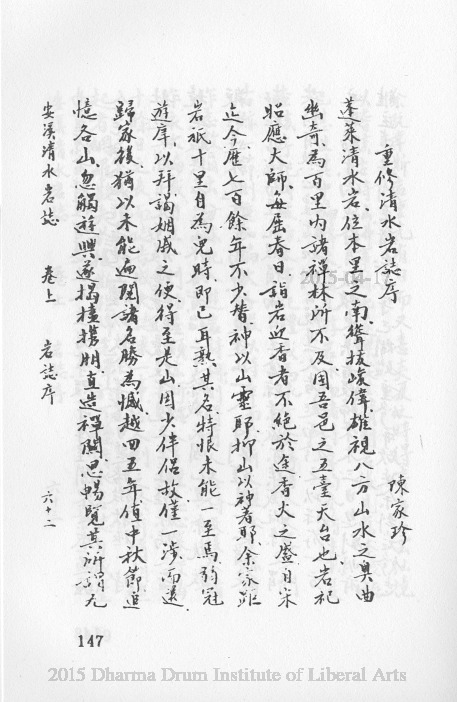 重修清水岩誌序
陳家珍
蓬萊清水岩、位本里之南、聳拔峻偉、雄視八方、山水之奧曲
幽奇、為百里内諸禪林所不及、固吾邑之五臺天台也、岩祀
昭應大師、每屆春日、詣岩迎香者不絕於途、香火之盛、自宋
迄今、歷七百餘年不少替、神以山靈耶、抑山以神著耶、余家距
岩祇十里、自為兒時、即已耳熟其名、特恨未能一至焉、弱冠
遊庠、以拜謁姻戚之便、得至是山、因少伴侶、故僅一涉而還、
歸家後、猶以未能遍閱諸名勝為憾、越四五年、值中秋節、追
憶名山、忽觸遊興、遂揭榼携朋、直造禪關、思暢覽其所謂九
安溪清水岩誌 卷上 岩誌序 六十二
147
2015-04-1
2015 Dharma Drum Institute of Liberal Arts